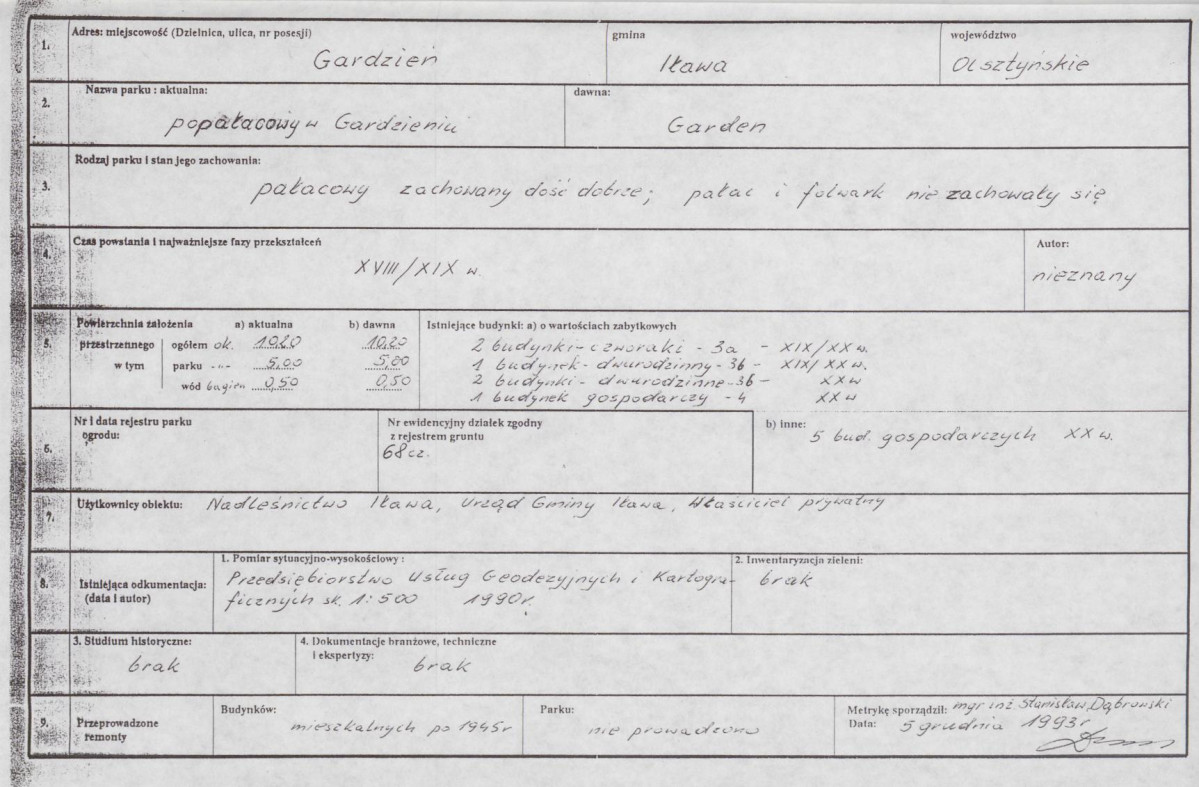 1. Adres: miejscowość (Dzielnica, ulica, nr posesji) gmina województwo
Gardzień Iława Olsztyńskie
2. Nazwa parku : aktualna: dawna:
popałacowy w Gardzieniu Garden
Rodzaj parku i stan jego zachowania:
3. pałacowy zachowany dość dobrze; pałac i folwark nie zachowały się
4. Czas powstania i najważniejsze fazy przekształceń Autor:
XVIII/XIX w. nieznany
5. Powierzchnia założenia a) aktualna b) dawna Istniejące budynki: a) o wartościach zabytkowych
przestrzennego ogółem ok. 10.20 10.20 2 budynki - czworaki - 3a - XIX/XX w.
w tym parku -"- 5.00 5,00 1 budynek - dwurodzinny - 3b - XIX/XX w.
wód bagien 0,50 0,50 2 budynki - dwurodzinne - 3b - XX w
1 budynek gospodarczy - 4 XX w
6. Nr i data rejestru parku Nr ewidencyjny działek zgodny b) inne: 5 bud. gospodarczych XX w.
ogrodu: z rejestrem gruntu
68 cz.
7. Użytkownicy obiektu: Nadleśnictwo Iława, Urząd Gminy Iława, Właściciel prywatny
1. Pomiar sytuacyjno-wysokościowy : 2. Inwentaryzacja zieleni:
8. Istniejąca odkumentacja: Przedsiębiorstwo Usług Geodezyjnych i Kartogra- brak
(data i autor) ficznych sk. 1:500 1990r.
3. Studium historyczne: 4. Dokumentacje branżowe, techniczne
i ekspertyzy:
brak brak
9. Przeprowadzone Budynków: Parku: Metrykę sporządził: mgr inż Stanisław Dąbrowski
remonty mieszkalnych po 1945r nie prowadzono Data: 5 grudnia 1993r